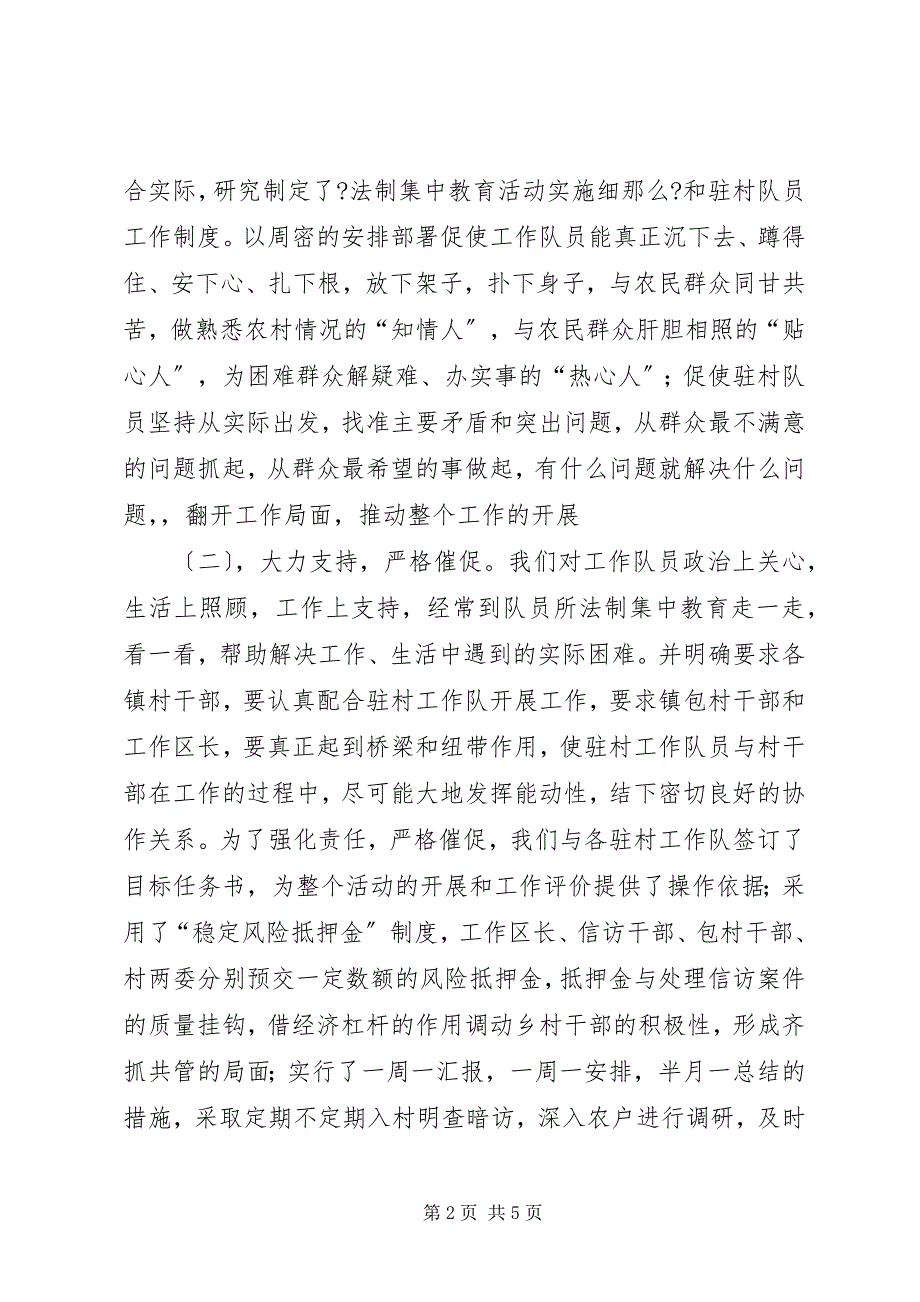 合实际，研究制定了?法制集中教育活动实施细那么?和驻村队员
工作制度。以周密的安排部署促使工作队员能真正沉下去、蹲得
住、安下心、扎下根，放下架子，扑下身子，与农民群众同甘共
苦，做熟悉农村情况的“知情人〞，与农民群众肝胆相照的“贴
心人〞，为困难群众解疑难、办实事的“热心人〞；促使驻村队
员坚持从实际出发，找准主要矛盾和突出问题，从群众最不满意
的问题抓起，从群众最希望的事做起，有什么问题就解决什么问
题，，翻开工作局面，推动整个工作的开展
〔二〕，大力支持，严格催促。我们对工作队员政治上关心，
生活上照顾，工作上支持，经常到队员所法制集中教育走一走，
看一看，帮助解决工作、生活中遇到的实际困难。并明确要求各
镇村干部，要认真配合驻村工作队开展工作，要求镇包村干部和
工作区长，要真正起到桥梁和纽带作用，使驻村工作队员与村干
部在工作的过程中，尽可能大地发挥能动性，结下密切良好的协
作关系。为了强化责任，严格催促，我们与各驻村工作队签订了
目标任务书，为整个活动的开展和工作评价提供了操作依据；采
用了“稳定风险抵押金〞制度，工作区长、信访干部、包村干部、
村两委分别预交一定数额的风险抵押金，抵押金与处理信访案件
的质量挂钩，借经济杠杆的作用调动乡村干部的积极性，形成齐
抓共管的局面；实行了一周一汇报，一周一安排，半月一总结的
措施，采取定期不定期入村明查暗访，深入农户进行调研，及时
第 2 页 共 5 页